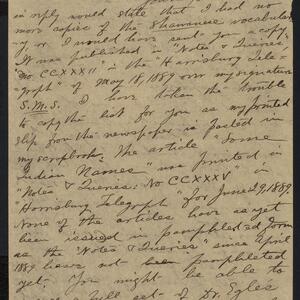 in reply would state that I had no
more copies of the Shawanese vocabula-
ry or I would have sent you a copy.
It was published in "Notes & Queries,
No CCXXXII" in the "Harrisburg Tele-
graph" of May 18, 1889 over my signature
S.M.S. I have taken the trouble
to copy the list for you as my printed
slip from the newspaper is pasted in
my scrapbook. The article "Some
Indian Names" was printed in
"Notes & Queries: No CCXXXV" in
"Harrisburg Telegraph" for June 9, 1889.
None of the articles have as yet
been issued in pamphleted form
as the "Notes & Queries" since April
1889 have not been pamphleted
yet. You might be able to
set of Dr. Egles